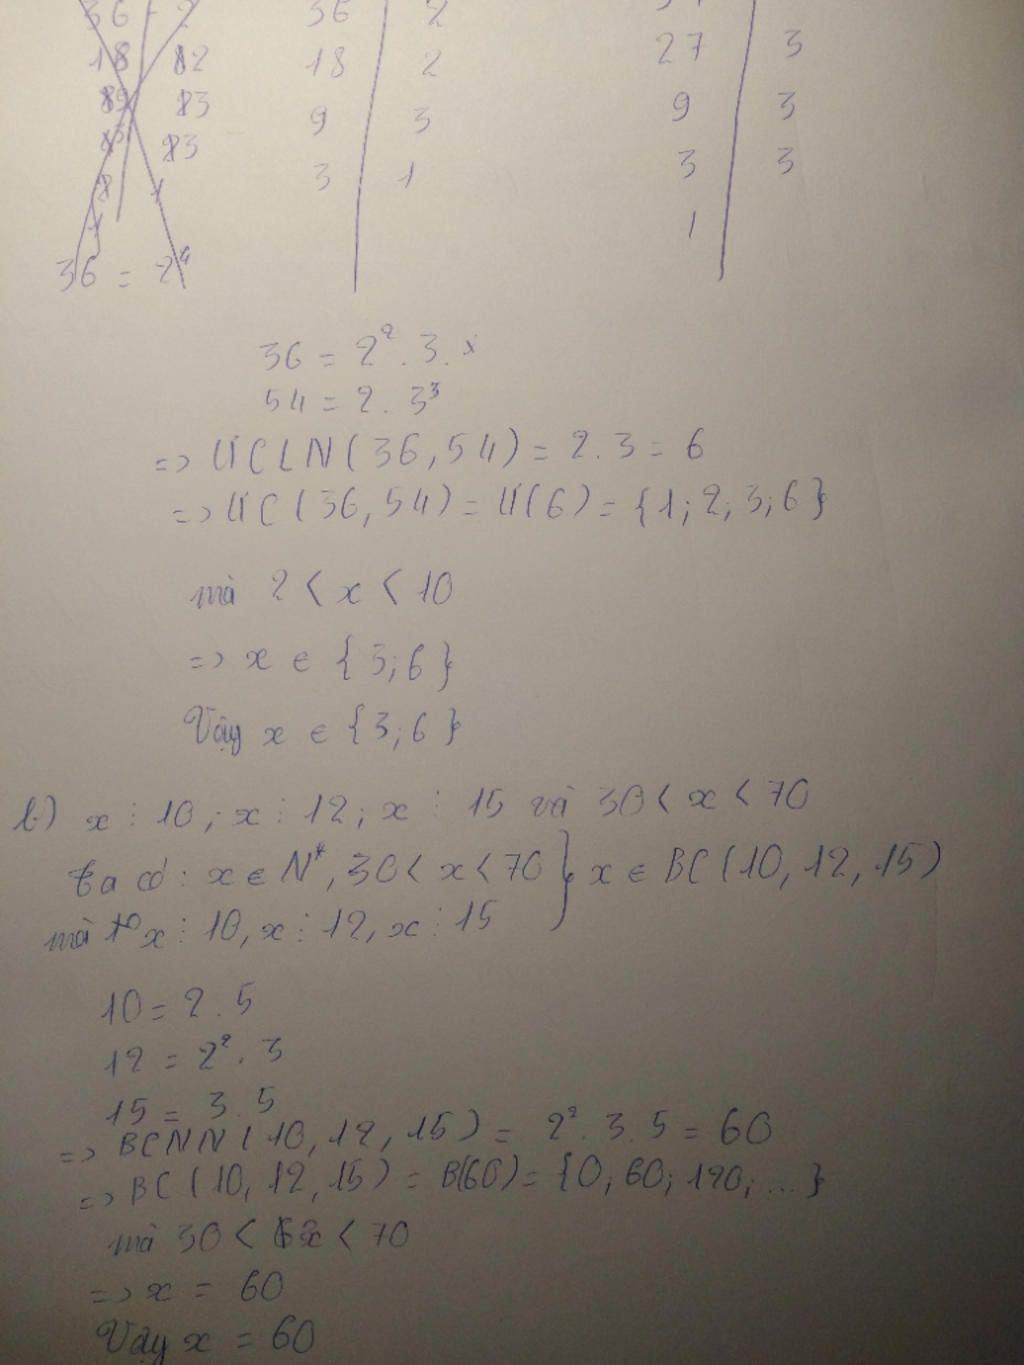 36 2 36 2
18 12 18 2 27 3
9 3 9 3
3 1 3 3
1
36 = 2⁴
36 = 2² . 3 .
54 = 2 . 3³
=> ƯCLN(36,54) = 2.3 = 6
=> ƯC(36,54) = Ư(6) = {1; 2; 3; 6}
mà 2 < x < 10
=> x ∈ {3; 6}
Vậy x ∈ {3; 6}
b) x ⋮ 10; x ⋮ 12; x ⋮ 15 và 30 < x < 70
Ta có: x ∈ N*, 30 < x < 70 } x ∈ BC(10, 12, 15)
mà x ⋮ 10, x ⋮ 12, x ⋮ 15
10 = 2 . 5
12 = 2² . 3
15 = 3 . 5
=> BCNN(10, 12, 15) = 2² . 3 . 5 = 60
=> BC(10, 12, 15) = B(60) = {0; 60; 120; ...}
mà 30 < x < 70
=> x = 60
Vậy x = 60